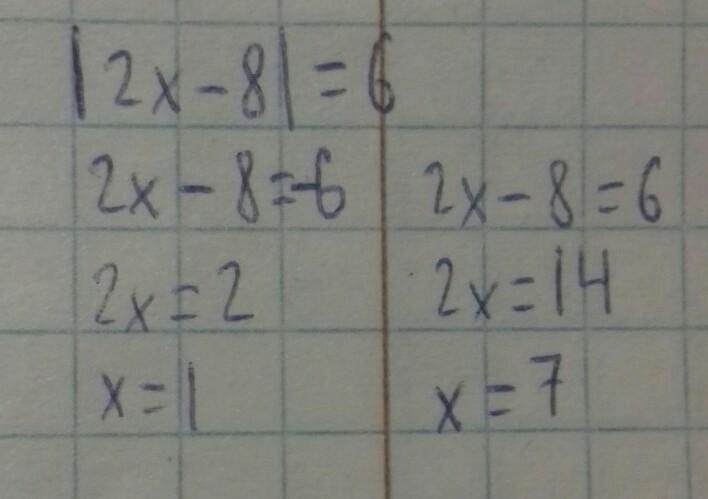 |2x-8|=6
2x-8=-6 2x-8=6
2x=2 2x=14
x=1 x=7